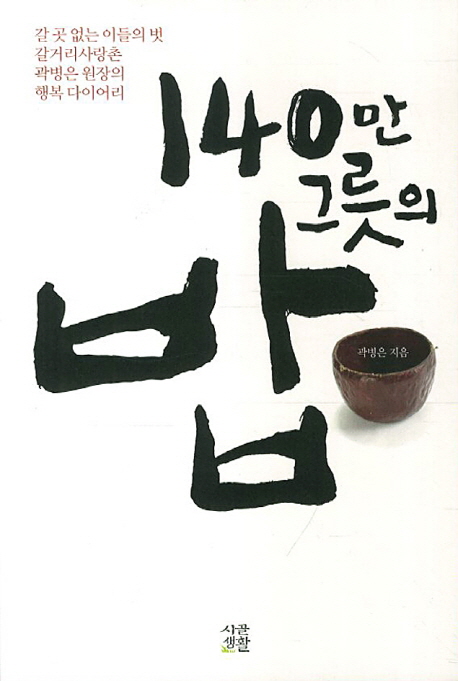 갈 곳 없는 이들의 벗
갈거리사랑촌
곽병은 원장의
행복 다이어리
140만
그릇의
밥
곽병은 지음
시골
생활